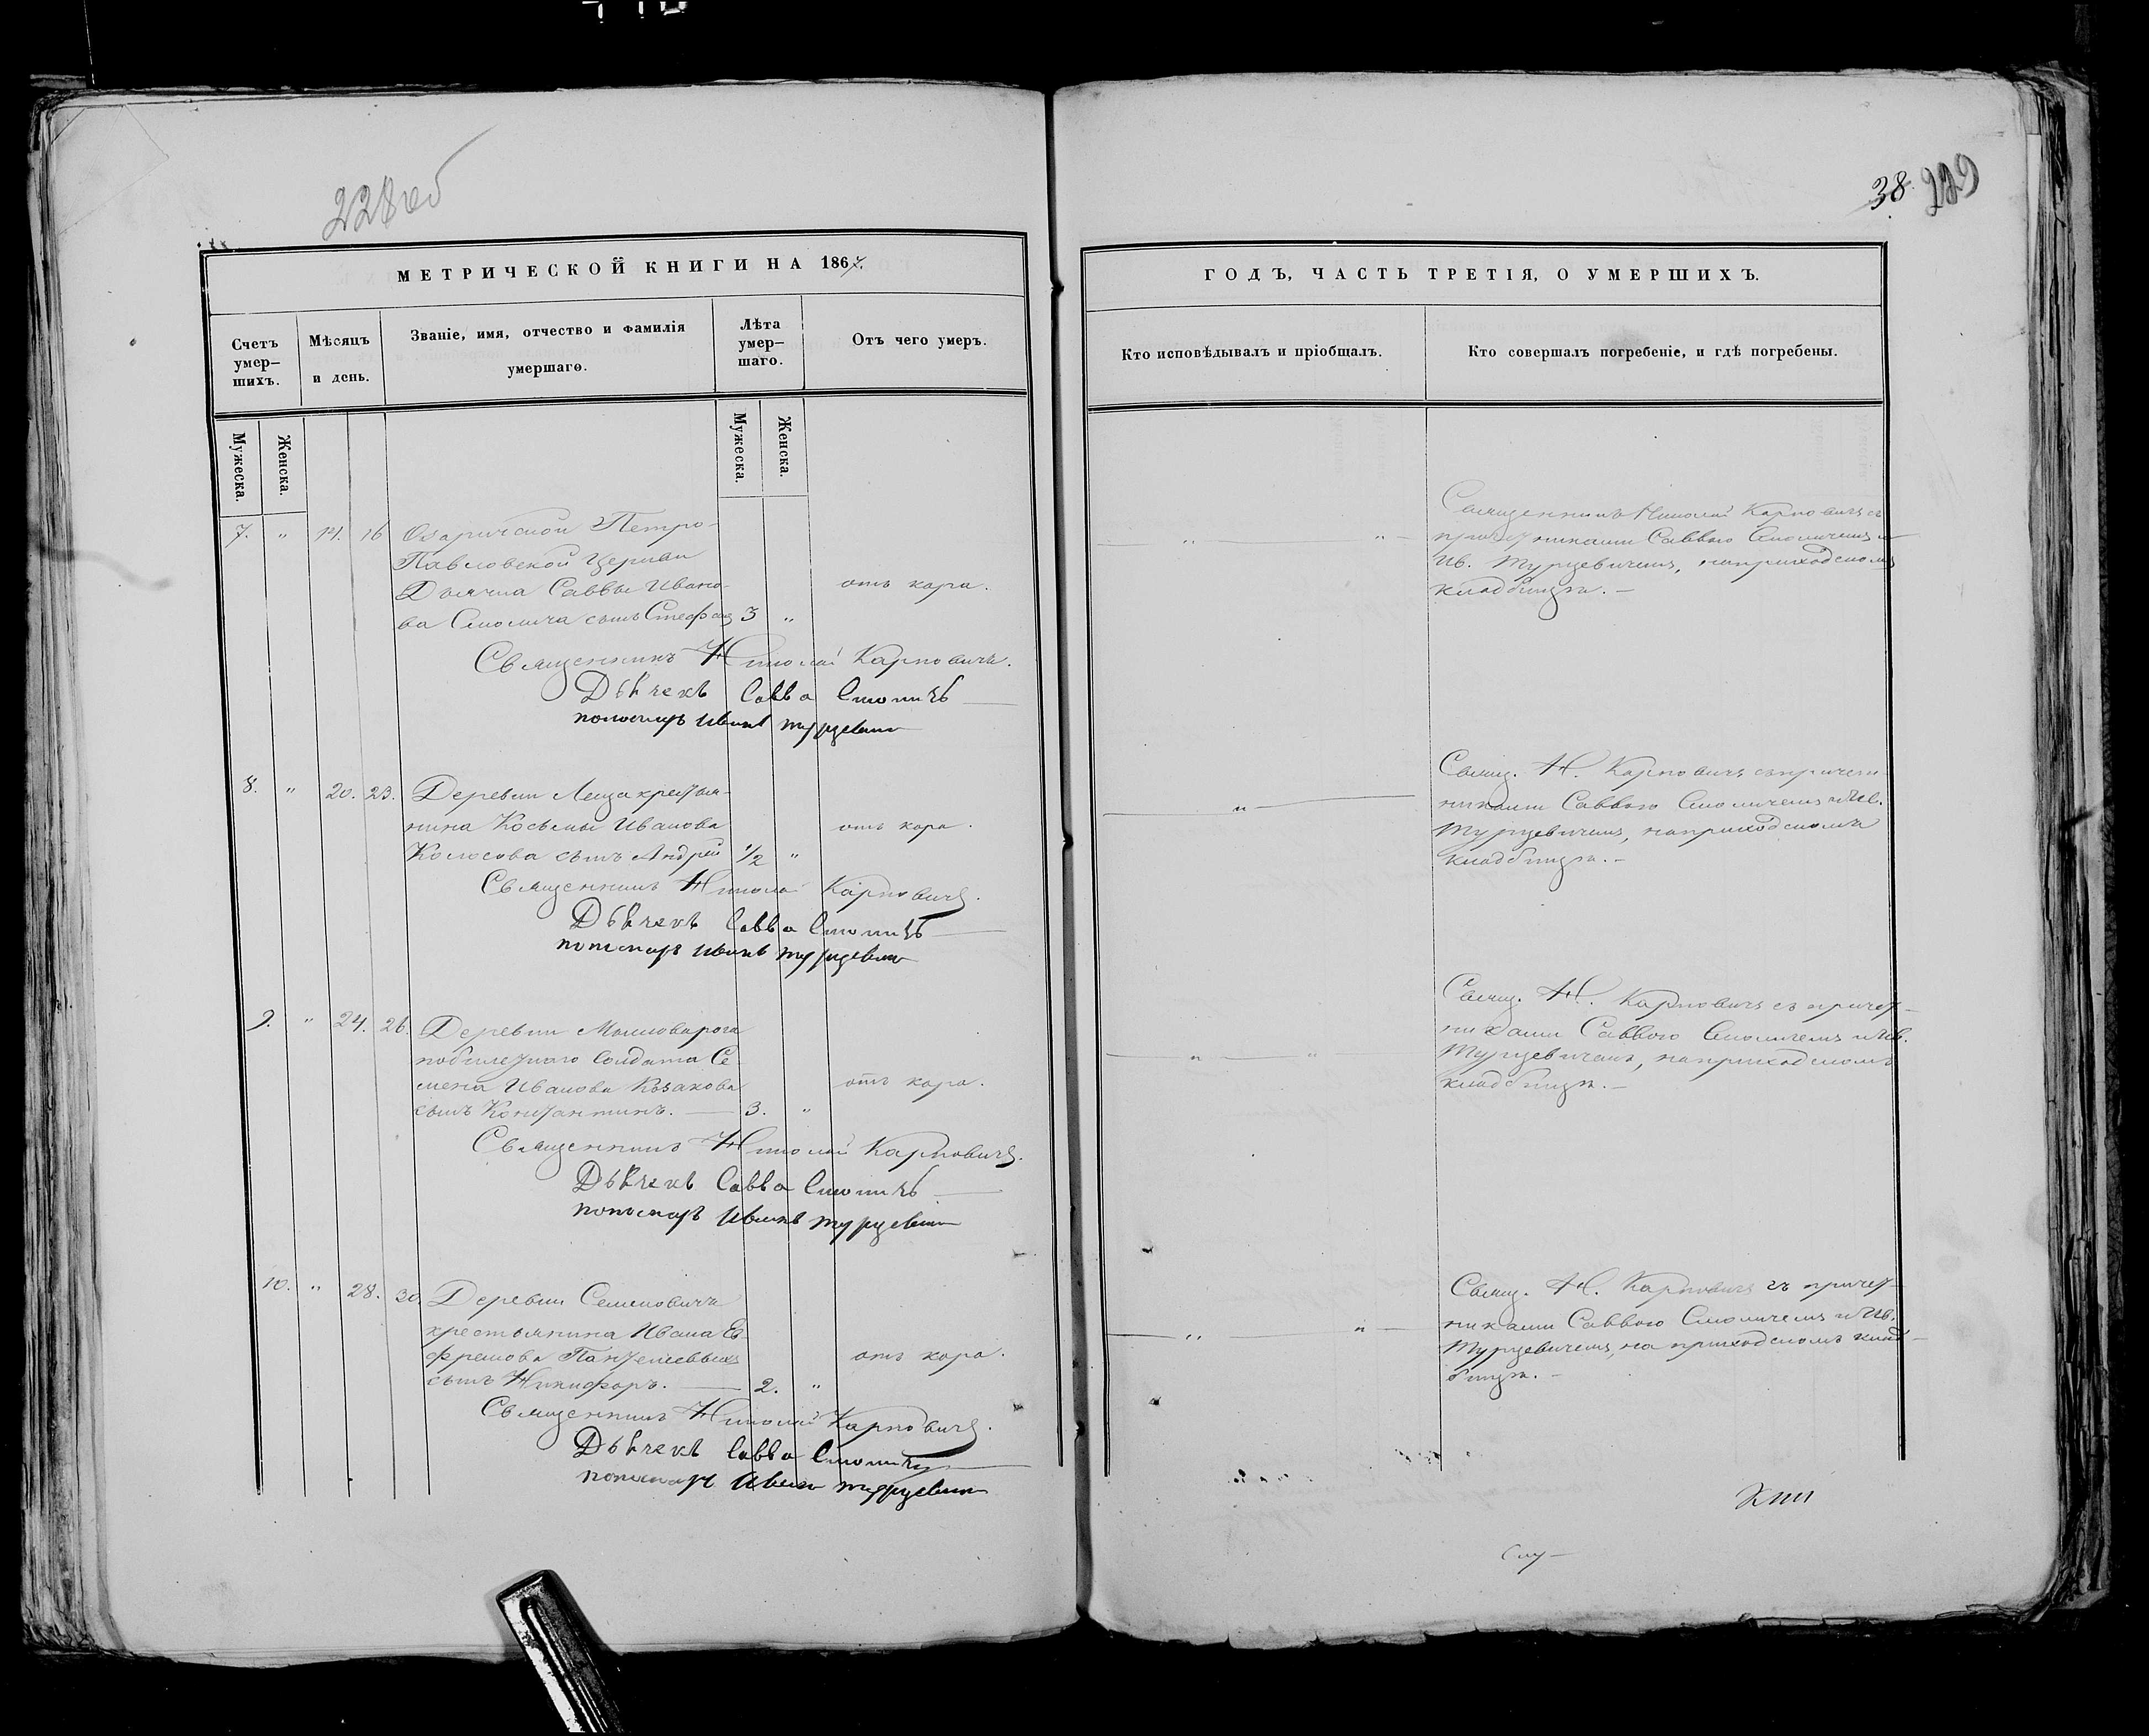 228об
МЕТРИЧЕСКОЙ КНИГИ НА 1867.
Счетъ умер–шихъ.
Мѣсяцъ и день.
Званіе, имя, отчество и фамилія умершаго.
Лѣта умер–шаго.
Отъ чего умеръ.
Мужеска.
Женска.
Мужеска.
Женска.
7. " 14. 16 Озаричской Петро-
Павловской Церкви
Дьячка Саввы Ивано- отъ кора.
ва Смолича сынъ Стефанъ 3 "
Священникъ Николай Карповичъ.
Дьячекъ Савва Смоличъ
пономарь Иванъ Турцевич
8. " 20. 23. Деревни Леща крестья-
нина Косьмы Иванова отъ кора.
Колосова сынъ Андрей 1/2 "
Священникъ Николай Карповичъ.
Дьячекъ Савва Смоличъ
пономарь Иванъ Турцевич
9. " 24. 26. Деревни
побилетнаго Солдата Се-
мена Иванова Казакова отъ кора.
сынъ Константинъ. 3. "
Священникъ Николай Карповичъ.
Дьячекъ Савва Смоличъ
пономарь Иванъ Турцевич
10. " 28. 30. Деревни Семеновича
крестьянина Ивана Еф-
фремова отъ кора.
сынъ Никифоръ. 2. "
Священникъ Николай Карповичъ.
Дьячекъ Савва Смоличъ
пономарь Иванъ Турцевич
38. 229
ГОДЪ, ЧАСТЬ ТРЕТІЯ, О УМЕРШИХЪ.
Кто исповѣдывалъ и пріобщалъ.
Кто совершалъ погребеніе, и гдѣ погребены.
Священникъ Николай Карповичъ съ
" " причетниками Саввою Смоличемъ и
Ив. Турцевичемъ, на приходскомъ
кладбищѣ.
Свящ. Н. Карповичъ съ причет-
" никами Саввою Смоличемъ и Ив.
Турцевичемъ, на приходскомъ
кладбищѣ.
Свящ. Н. Карповичъ съ причет-
никами Саввою Смоличемъ и Ив.
" " Турцевичемъ, на приходскомъ
кладбищѣ.
Свящ. Н. Карповичъ съ причет-
никами Саввою Смоличемъ и Ив.
" " Турцевичемъ, на приходскомъ клад-
бищѣ.